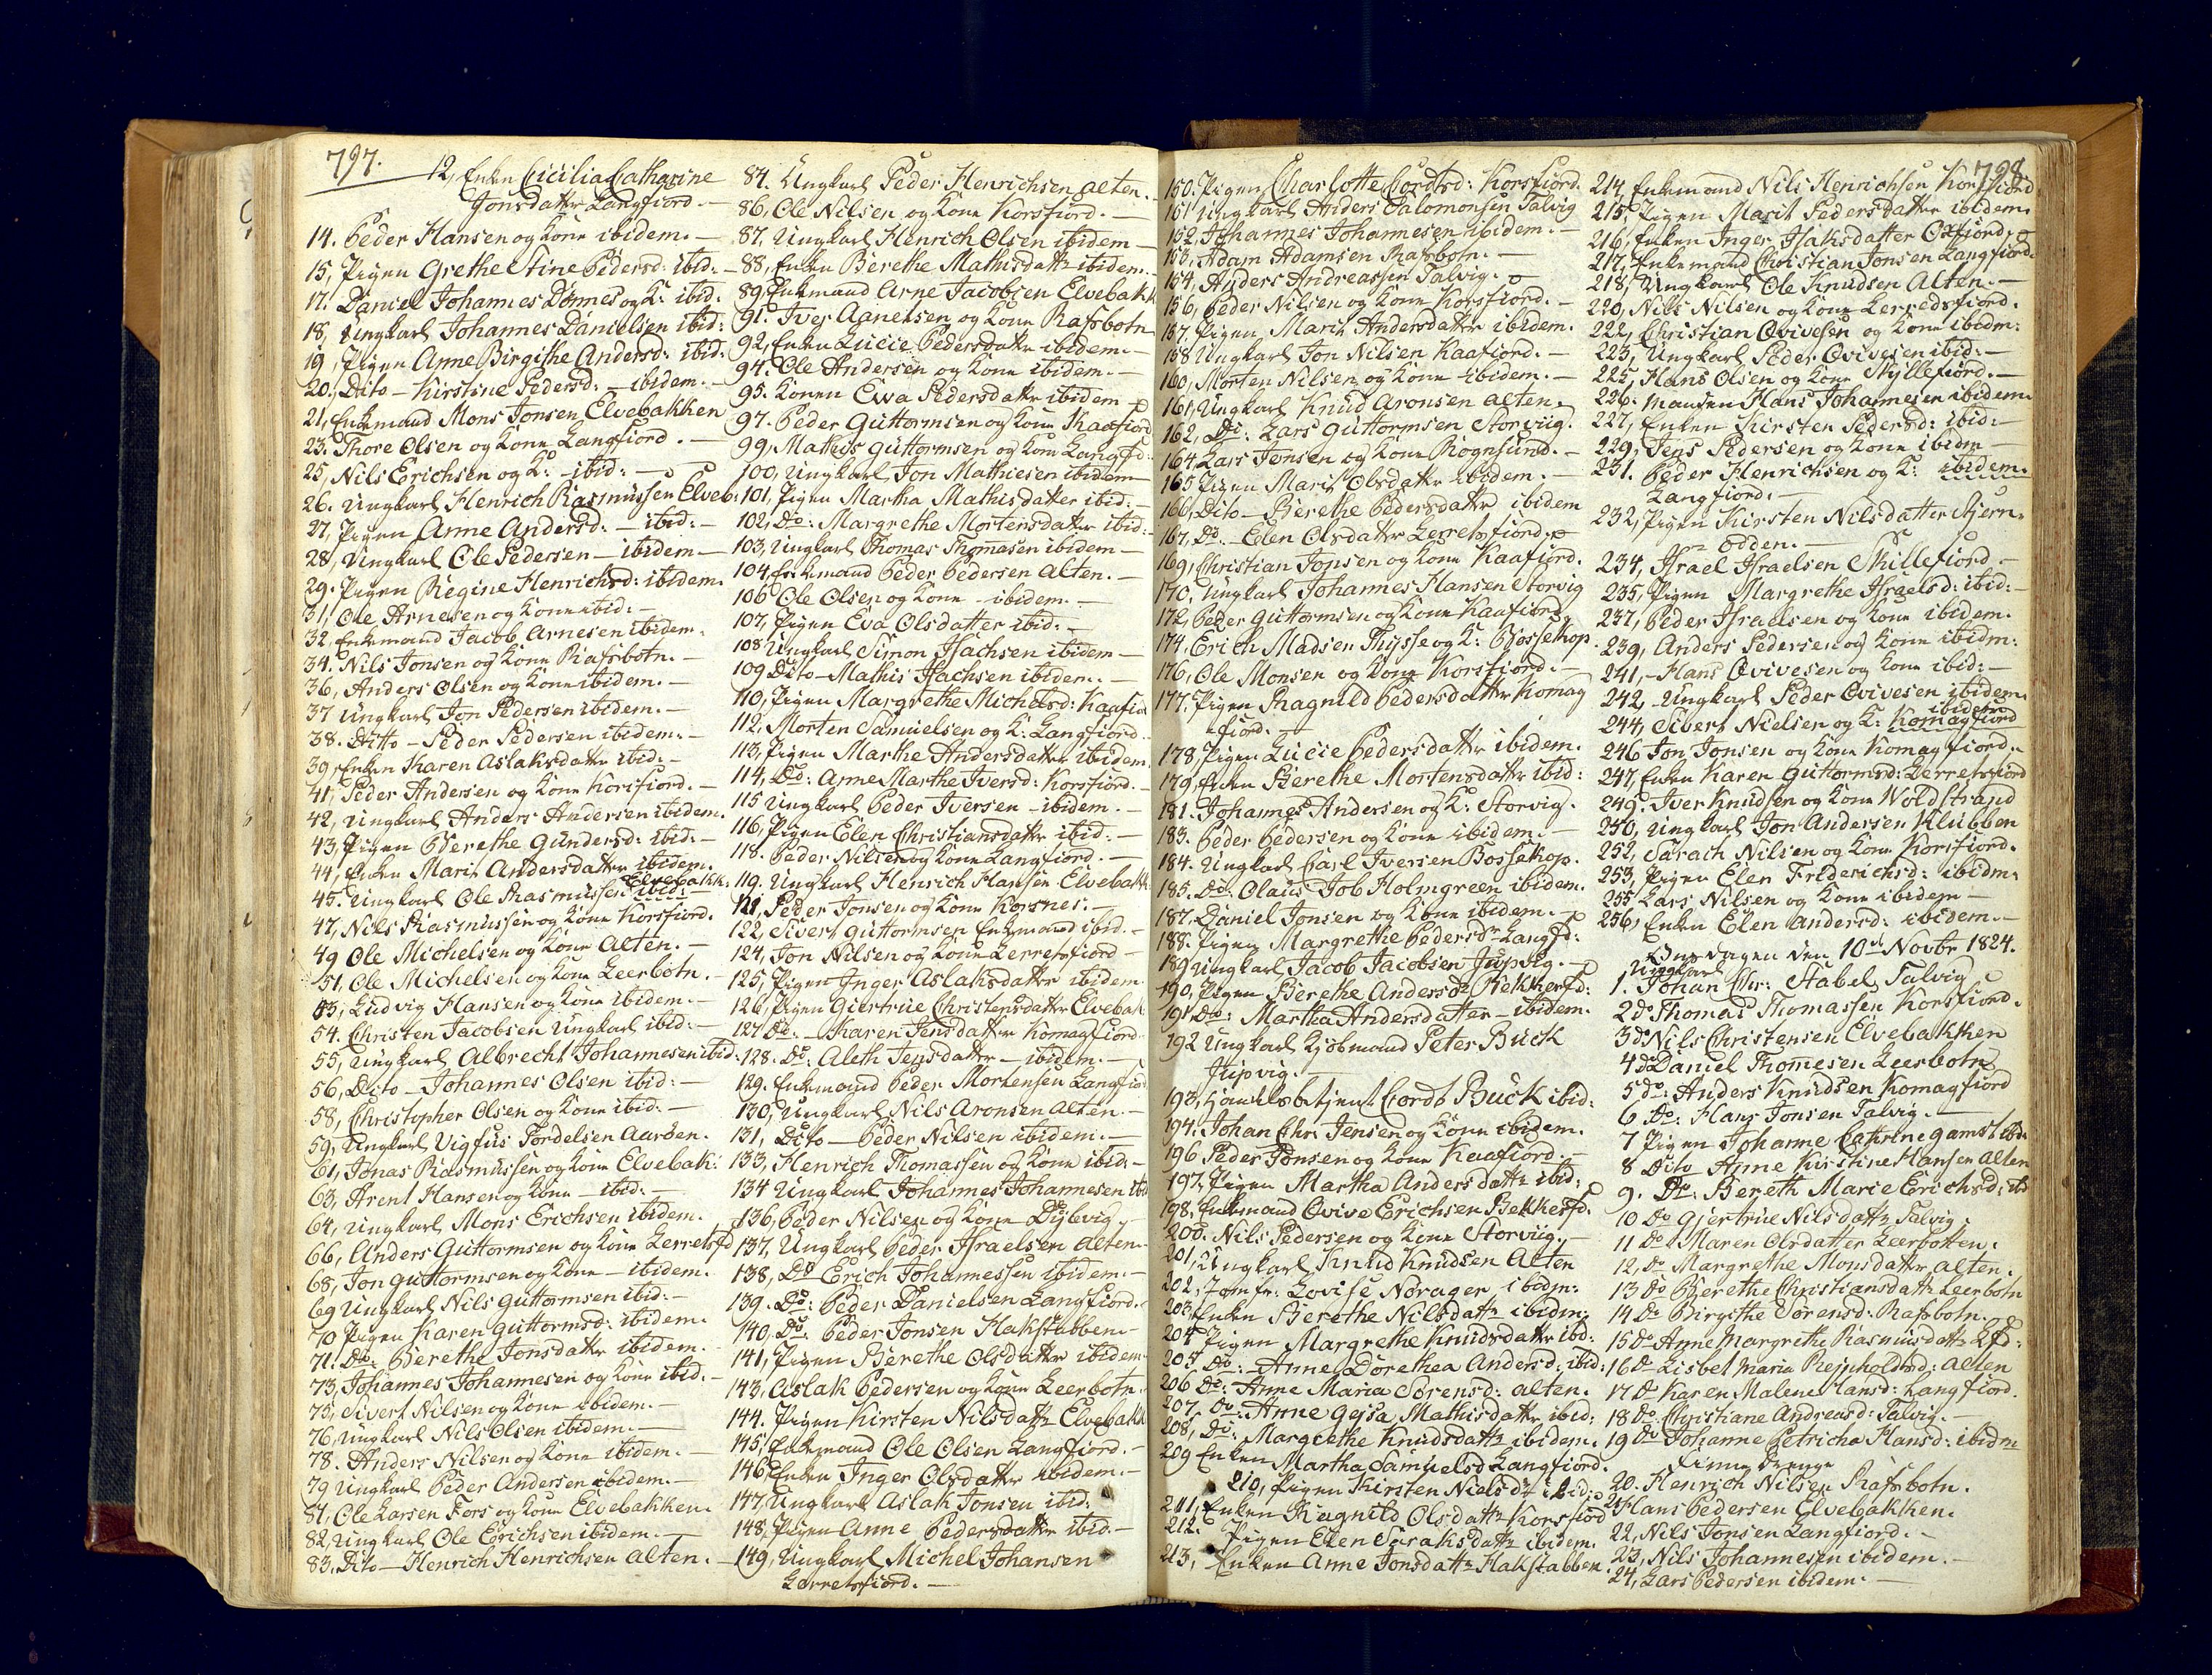 797.
12, Enken Cicilia Catharine
Jonsdatter Langfiord. —
14. Peder Hansen og Kone ibidem. —
15, Pigen Grethe Stine Pedersd: ibid: —
17. Daniel Johannes Dönnes og K: ibid:
18, Ungkarl Johannes Danielsen ibid:
19, Pigen Anne Birgithe Andersd: ibid:
20., Dito — Kirstine Pedersd: — ibidem. —
21, Enkemand Mons Jonsen Elvebakken
23. Thore Olsen og Kone Langfiord. —
25, Nils Erichsen og K: — ibid: —
26. Ungkarl Henrich Rasmussen Elveb:
27, Pigen Anne Andersd: — ibid: —
28, Ungkarl Ole Pedersen — ibidem —
29. Pigen Regine Henrichsd: ibidem.
31, Ole Arnesen og Kone ibid: —
32. Enkemand Jacob Arnesen ibidem.
34. Nils Jonsen og Kone Rafsbotn. —
36, Anders Olsen og Kone ibidem. —
37 Ungkarl Jon Pedersen ibidem. —
38. Ditto — Peder Pedersen ibidem. —
39, Enken Karen Aslaksdatter ibid: —
41, Peder Andersen og Kone Korsfiord. —
42, Ungkarl Anders Andersen ibidem.
43, Pigen Berethe Gundersd: ibid: —
44, Enken Marit Andersdatter ibidem.
45. Ungkarl Ole Rasmussen ibid: Elvebakk:
47, Nils Rasmussen og Kone Korsfiord.
49 Ole Michelsen og Kone Alten. —
51, Ole Michelsen og Kone Leerbotn. —
53, Ludvig Hansen og Kone ibidem. —
54. Christen Jacobsen Ungkarl ibid: —
55, Ungkarl Albrecht Johannesen ibid:
56, Dito — Johannes Olsen ibid: —
58, Christopher Olsen og Kone ibid: —
59, Ungkarl Vigfus Tordelsen Aaröen.
61, Jonas Rasmussen og Kone Elvebak:
63, Arent Hansen og Kone — ibid: —
64, Ungkarl Mons Erichsen ibidem.
66, Anders Guttormsen og Kone Lerretsfd
68, Jon Guttormsen og Kone — ibidem.
69 Ungkarl Nils Guttormsen ibid: —
70 Pigen Karen Guttormsd: ibidem.
71. Do: Berethe Jonsdatter ibidem.
73, Johannes Johannesen og Kone ibid. —
75, Sivert Nilsen og Kone ibidem. —
76, Ungkarl Nils Olsen ibidem. —
78. Anders Nilsen og Kone ibidem. —
79 Ungkarl Peder Andersen ibidem. —
81, Ole Larsen Fors og Kone Elvebakken.
82, Ungkarl Ole Erichsen ibidem. —
83. Dito — Henrich Henrichsen Alten. —
84. Ungkarl Peder Henrichsen Alten. —
86, Ole Nilsen og Kone Korsfiord. —
87, Ungkarl Henrich Olsen ibidem —
88, Enken Berethe Mathisdattr ibidem. —
89, Enkemand Arne Jacobsen Elvebakk
91. Iver Agnesen og Kone Rafsbotn
92, Enken Lucie Pedersdattr ibidem. —
94. Ole Andersen og Kone ibidem. —
95. Konen Ewa Pedersdattr ibidem
97. Peder Guttormsen og Kone Kaafiord
99, Mathis Guttormsen og Kone Langfd:
100, Ungkarl Jon Mathiesen ibidem
101, Pigen Martha Mathisdatter ibid: —
102, Do: Margrethe Mortensdatter ibid:
103, Ungkarl Thomas Thomasen ibidem —
104, Enkemand Peder Pedersen Alten. —
106 Ole Olsen og Kone — ibidem. —
107, Pigen Eva Olsdatter ibid: —
108 Ungkarl Simon Isachsen ibidem —
109 Dito — Mathis Isachsen ibidem. —
110, Pigen Margrethe Michelsd: Kaafio
112, Morten Samuelsen og K: Langfiord
113, Pigen Marthe Andersdatter ibidem
114. Do: Anne Marthe Iversd: Korsfiord. —
115 Ungkarl Peder Iversen — ibidem. —
116, Pigen Elen Christiansdattr ibid: —
118. Peder Nilsen og Kone Langfiord. —
119. Ungkarl Henrich Hansen Elvebakk
121, Peder Jonsen og Kone Korsnes. —
122, Sivert Guttormsen Enkemand ibid. —
124, Jon Nilsen og Kone Lerretsfiord —
125, Pigen Inger Aslaksdatter ibidem
126, Pigen Giertrue Christensdatter Elvebak
127 Do: — Karen Jensdatter Komagfiord
128. Do: Aleth Jensdatter — ibidem. —
129. Enkemand Peder Mortensen Langfio:
130, Ungkarl Nils Aronsen Alten. —
131, Dito — Peder Nilsen ibidem. —
133, Henrich Thomassen og Kone ibid: —
134 Ungkarl Johannes Johannesen ibd
136, Peder Nilsen og Kone Dybvig. —
137, Ungkarl Peder Israelsen Alten —
138, Do Erich Johannessen ibidem. —
139. Do: Peder Danielsen Langfiord. —
140, Do: Peder Jonsen Hakstabben —
141, Pigen Berethe Olsdatter ibidem
143, Aslak Pedersen og Kone Leerbotn.
144. Pigen Kirsten Nilsdattr Elvebakk
145, Enkemand Ole Olsen Langfiord. —
146, Enken Inger Olsdatter ibidem. —
147, Ungkarl Aslak Jonsen ibid:
148, Pigen Anne Pedersdatter ibid: —
149, Ungkarl Michel Johansen
Lerretsfiord. —
798
150. Pigen Charlotte Cordtsd: Korsfiord.
151 Ungkarl Anders Salomonsen Talvig
152, Johannes Johannesen ibidem. —
153. Adam Adamsen Rafsbotn. —
154, Anders Andreassen Talvig. —
156, Peder Nilsen og Kone Korsfiord. —
157, Pigen Marit Andersdatter ibidem.
158 Ungkarl Jon Nilsen Kaafiord. —
160, Morten Nilsen og Kone ibidem. —
161, Ungkarl Knud Aronsen Alten.
162, Do: Lars Guttormsen Storviig.
164 Lars Jonsen og Kone Rognsund. —
165 Pigen Marit Olsdatter ibidem. —
166, Dito — Berethe Pedersdatter ibidem
167, Do. — Elen Olsdatter Lerretsfiord.
169, Christian Jonsen og Kone Kaafiord.
170, Ungkarl Johannes Hansen Storvig
172, Peder Guttormsen og Kone Kaafiord
174, Erich Madsen Thysse og K: Bossekop
176, Ole Monsen og Kone Korsfiord. —
177. Pigen Ragnild Pedersdatter Komag
fiord. —
178, Pigen Lucie Pedersdatter ibidem.
179, Enken Berethe Mortensdatter ibid:
181. Johannes Andersen og K: Storvig.
183. Peder Pedersen og Kone ibidem. —
184. Ungkarl Carl Iversen Bossekop.
185. Do: Olaus Job Holmgreen ibidem.
187. Daniel Jonsen og Kone ibidem. —
188. Pigen Margrethe Pedersdr Langfd:
189 Ungkarl Jacob Jacobsen Jupvig. —
190, Pigen Berethe Andersdr Bekkerfd:
191 Do: Martha Andersdatter — ibidem.
192 Ungkarl Kjöbmand Peter Buck
Jupvig. —
193, Handelsbetjent Cordt Buck ibid:
194. Johan Chr: Jensen og Kone ibidem.
196. Peder Jonsen og Kone Kaafiord. —
197. Pigen Martha Andersdattr ibid:
198, Enkemand Qvive Erichsen Bekkerfd.
200. Nils Pedersen og Kone Storviig. —
201, Ungkarl Knud Knudsen Alten
202, Jomfr: Lovise Norager ibidm:
203, Enken Berethe Nilsdattr ibidm:
204 Pigen Margrethe Knudsdattr ibd:
205 Do: Anne Dorethea Andersd: ibid:
206 Do: Anne Maria Sörensd: Alten.
207. Do: Anne Gejsa Mathisdattr ibid:
208, Do: Margrethe Knudsdattr ibidem.
209 Enken Martha Samuelsd Langfiord.
210, Pigen Kirsten Nielsdr ibid:
211, Enken Ragnild Olsdattr Korsfiord
212. Pigen Elen Saraksdattr ibidem.
213, Enken Anne Jonsdattr Hakstabben
214, Enkemand Nils Henrichsen Korsfiord
215, Pigen Marit Pedersdatter ibidem.
216, Enken Inger Isaksdatter Oxfiord.
217, Enkemand Christian Jonsen Langfiord.
218, Ungkarl Ole Knudsen Alten. —
220, Nils Nilsen og Kone Lerredsfiord.
222, Christian Qvivesen og Kone ibidm:
223, Ungkarl Peder Qvivesen ibid: —
225, Hans Olsen og Kone Skyllefiord. —
226. Manden Hans Johannesen ibidem
227, Enken Kirsten Pedersd: ibid: —
229, Jens Pedersen og Kone ibidem —
231. Peder Henrichsen og K: ibidem.
Langfiord. —
232, Pigen Kirsten Nilsdatter Stjern-
odden. —
234, Israel Israelsen Skillefiord. —
235, Pigen Margrethe Israelsd: ibid: —
237, Peder Israelsen og Kone ibidem.
239, Anders Pedersen og Kone ibidm:
241, Hans Qvivesen og Kone ibid: —
242, Ungkarl Peder Qvivesen ibidem.
ibidem
244, Sivert Nielsen og K: Komagfiord
246 Jon Jonsen og Kone Komagfiord. —
247, Enken Karen Guttormsd: Lerretsfiord
249. Iver Knudsen og Kone Woldstrand
250, Ungkarl Jon Andersen Klubben
252, Sarach Nilsen og Kone Korsfiord.
253, Pigen Elen Frederichsd: ibidm.
255 Lars Nilsen og Kone ibidem —
256, Enken Elen Andersd: ibidem. —
Onsdagen den 10de Novbr 1824.
Ungkarl
1. Johan Chr: Stabel Talvig
2 do Thomas Thomassen Korsfiord.
3 do Nils Christensen Elvebakken
4 do Daniel Thomesen Leerbotn
5 do: Anders Knudsen Komagfiord
6 Do: Hans Jonsen Talvig. —
7 Pigen Johanne Cathrine Gamst ibd:
8 Dito Anne Kirstine Hansen Alten
9. Do: Bereth Marie Erichsd: ibd
10 Do Gjertrue Nilsdattr Talvig
11 Do Maren Olsdatter Leerbotten.
12, Do Margrethe Monsdattr Alten.
13 Do Berethe Christiansdattr Leerbotn
14 Do Birgithe Sörensd: Rafsbotn.
15 Do Anne Margrethe Rasmusdattr Lfd:
16 Do Lisbet Maria Rejnholdtsd: Alten
17 Do Karen Malene Hansd: Langfiord.
18 Do. Christiane Andreasd: Talvig. —
19 Do Johanne Petricha Hansd: ibidm
Finne Drenge
20. Henrich Nilsen Rafsbotn.
21 Hans Pedersen Elvebakken.
22, Nils Jonsen Langfiord. —
23, Nils Johannesen ibidem. —
24, Lars Pedersen ibidem. —